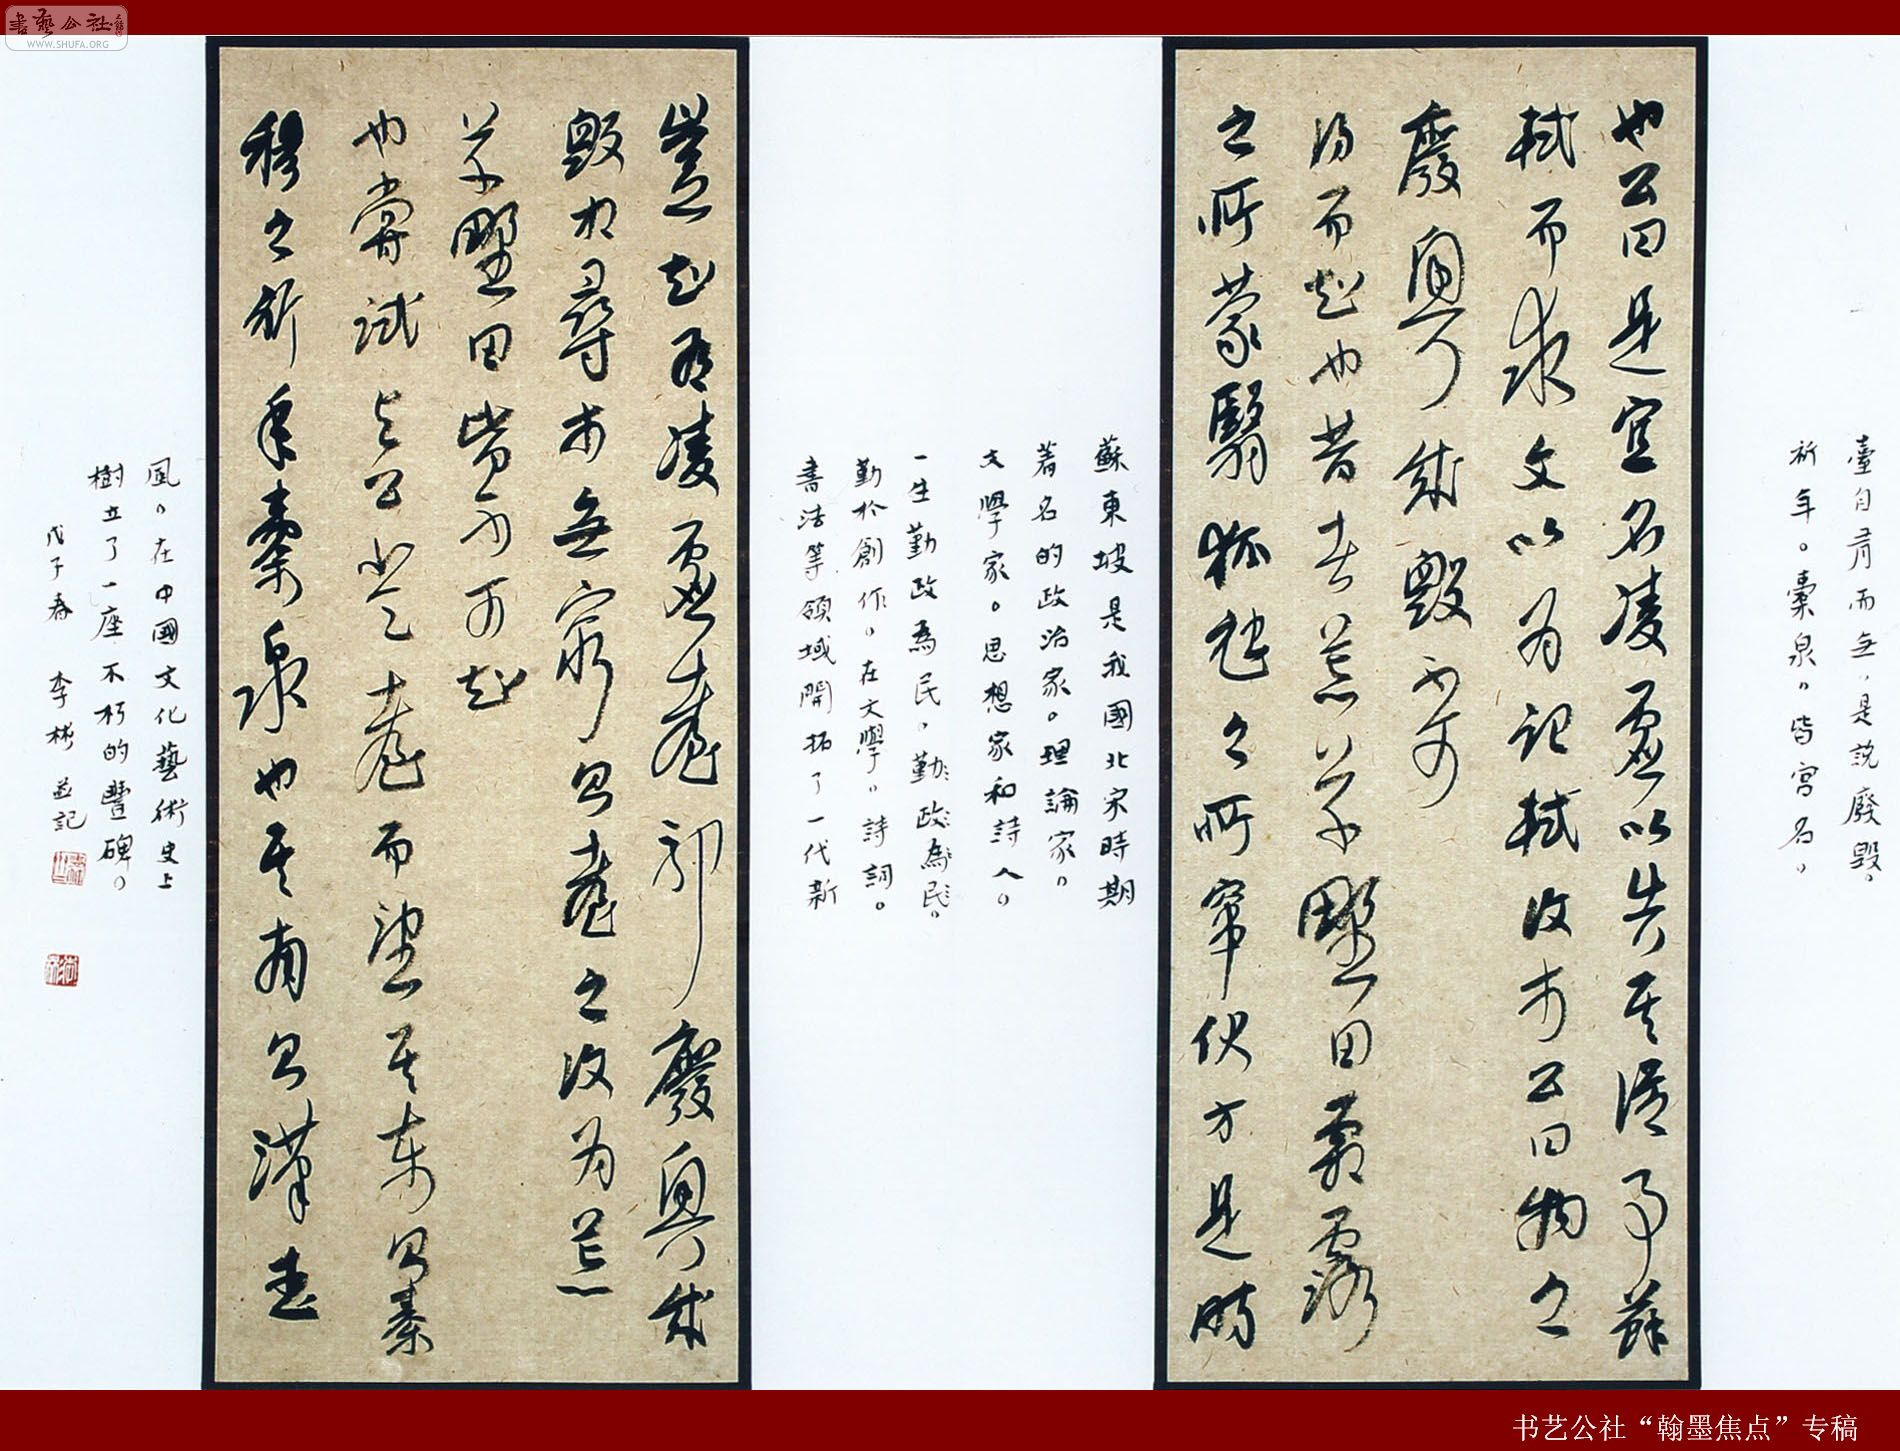 書藝公社
WWW.SHUFA.ORG
臺自有而無。是説廢毀。
祈年。橐泉。皆宮名。
也公曰是宜名凌虛以告其從事蘇
軾而求文以為記軾復於公曰物之
廢興成毀不可
得而知也昔者荒草野田霜露
之所蒙翳狐虺之所竄伏方是時
蘇東坡是我國北宋時期
著名的政治家。理論家。
文學家。思想家和詩人。
一生勤政為民。勤政為民。
勤於創作。在文學。詩詞。
書法等領域開拓了一代新
豈知有凌虛臺耶廢興成
毀相尋於無窮則臺之復為荒
草野田皆不可知
也嘗試與公登臺而望其東則秦
穆之祈年橐泉也其南則漢武
風。在中國文化藝術史上
樹立了一座不朽的豐碑。
戊子春 李彬並記
书艺公社“翰墨焦点”专稿